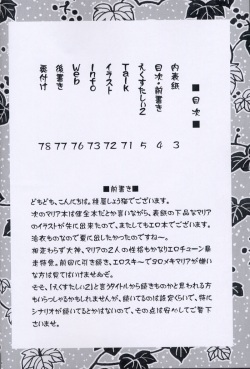 ■目次■
内表紙 3
目次・前書き 4
えくすたしい2 5
Talk 71
イラスト 72
Info 73
Web 76
後書き 77
奥付け 78
■前書き■
どもども、こんにちは。綾屋しょう猫でございます。
次のマリア本は健全本だとか言いながら、表紙の下品なマリア
のイラストが先に出来たので、またしてもエロ本でございます。
浴衣ものなので夏に出したかったのですねー。
相変わらず大神、マリアの2人の性格もかなりエロチューン暴
走特急。前回に引き続き、エロスキーでダロメキマリアが嫌い
な方は見てはいけませんぞ。
そそ、「えくすたしい2」と言うタイトルから続きものかと思われる方
もいらっしゃるかもしれませんが、続いてるのは設定くらいで、特に
シナリオが続いてるとかはないので、その点は安心してご覧下
さいませ。